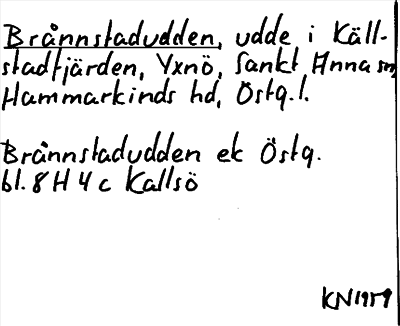 Brånnstadudden, udde i Käll-
stadfjärden, Yxnö, Sankt Anna sn,
Hammarkinds hd, Östg.l.
Brånnstadudden ek Östg.
bl. 8 H 4 c Kallsö
KN 1959